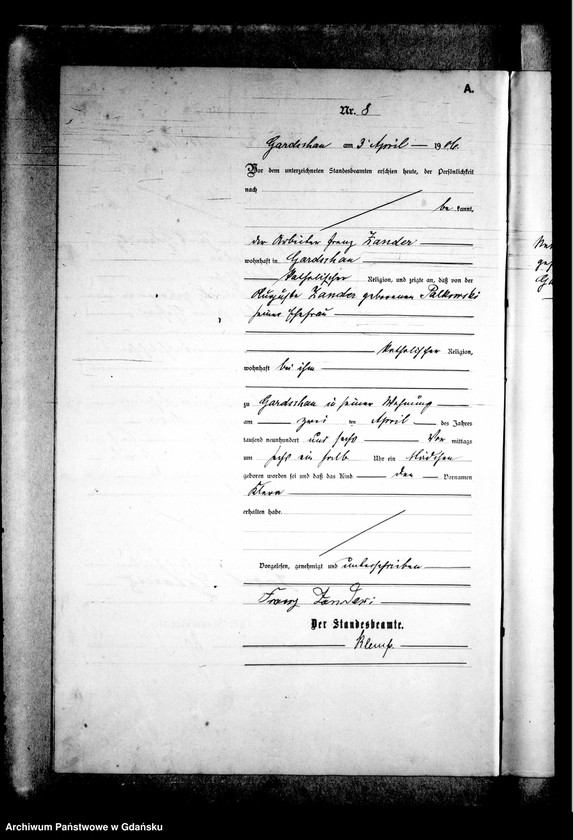 A.
Nr. 8
Gardschau am 3 April 1906.
Vor dem unterzeichneten Standesbeamten erschien heute, der Persönlichkeit
nach
be kannt,
der Arbeiter Franz Zander
wohnhaft in Gardschau
katholischer Religion, und zeigte an, daß von der
Auguste Zander geborenen Palkowski
seiner Ehefrau
katholischer Religion,
wohnhaft bei ihm
zu Gardschau in seiner Wohnung
am zwei ten April des Jahres
tausend neunhundert und sechs Vor mittags
um sechs ein halb Uhr ein Mädchen
geboren worden sei und daß das Kind den Vornamen
Klara
erhalten habe.
Vorgelesen, genehmigt und unterschrieben
Franz
Der Standesbeamte.
Archiwum Państwowe w Gdańsku